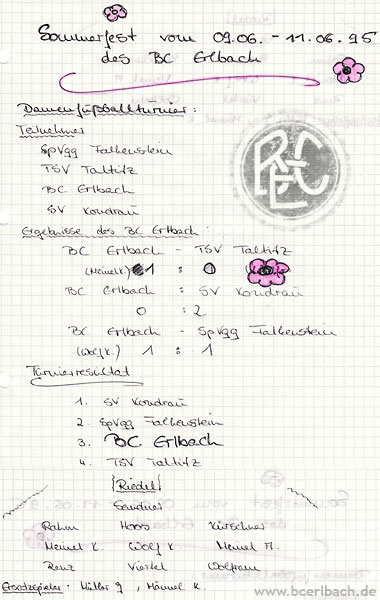 Sommerfest vom 09.06. - 11.06.95
des BC Erlbach
Damenfußballturnier:
Teilnehmer
SpVgg Falkenstein
TSV Taltitz
BC Erlbach
SV Kondrau
Ergebnisse des BC Erlbach:
BC Erlbach - TSV Taltitz
(Meinel K.) 1 : 0
BC Erlbach : SV Kondrau
0 : 2
BC Erlbach - SpVgg Falkenstein
(Wolf K.) 1 : 1
Turnierresultat
1. SV Kondrau
2. SpVgg Falkenstein
3. BC Erlbach
4. TSV Taltitz
Riedel
Sandner
Rahm Hoos Kürschner
Meinel K. Wolf K. Meinel A.
Renz Viertel Wolfram
Ersatzspieler: Müller J, Männel K.
www.bcerlbach.de